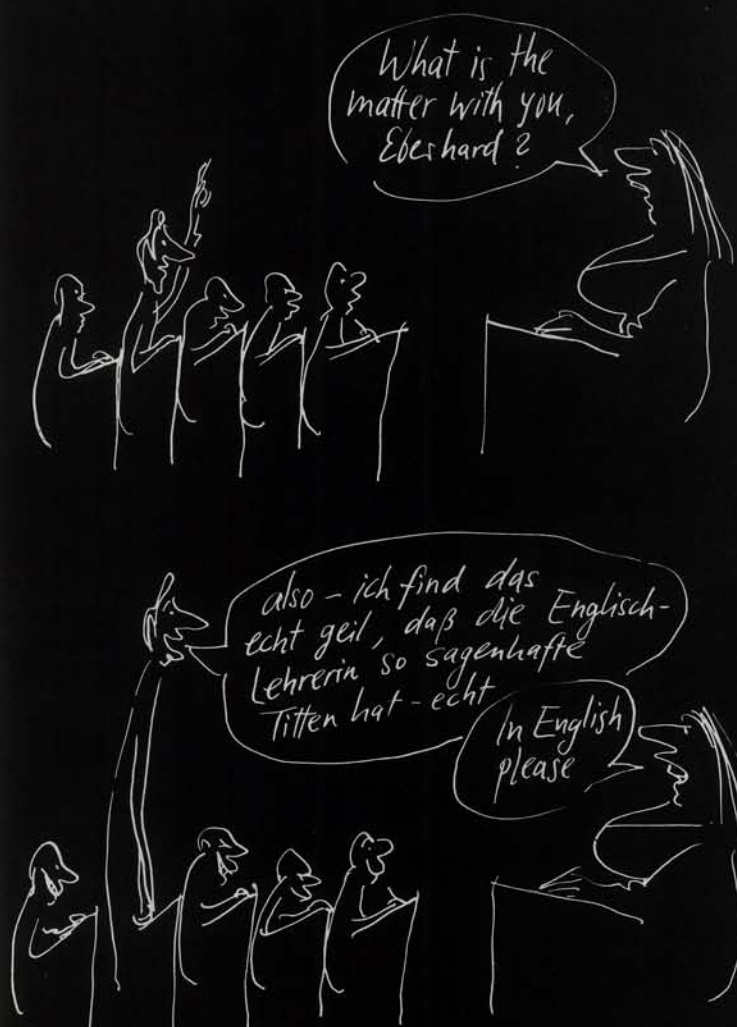 What is the
matter with you,
Eberhard?
also – ich find das
echt geil, daß die Englisch-
Lehrerin so sagenhafte
Titten hat – echt
In English
please